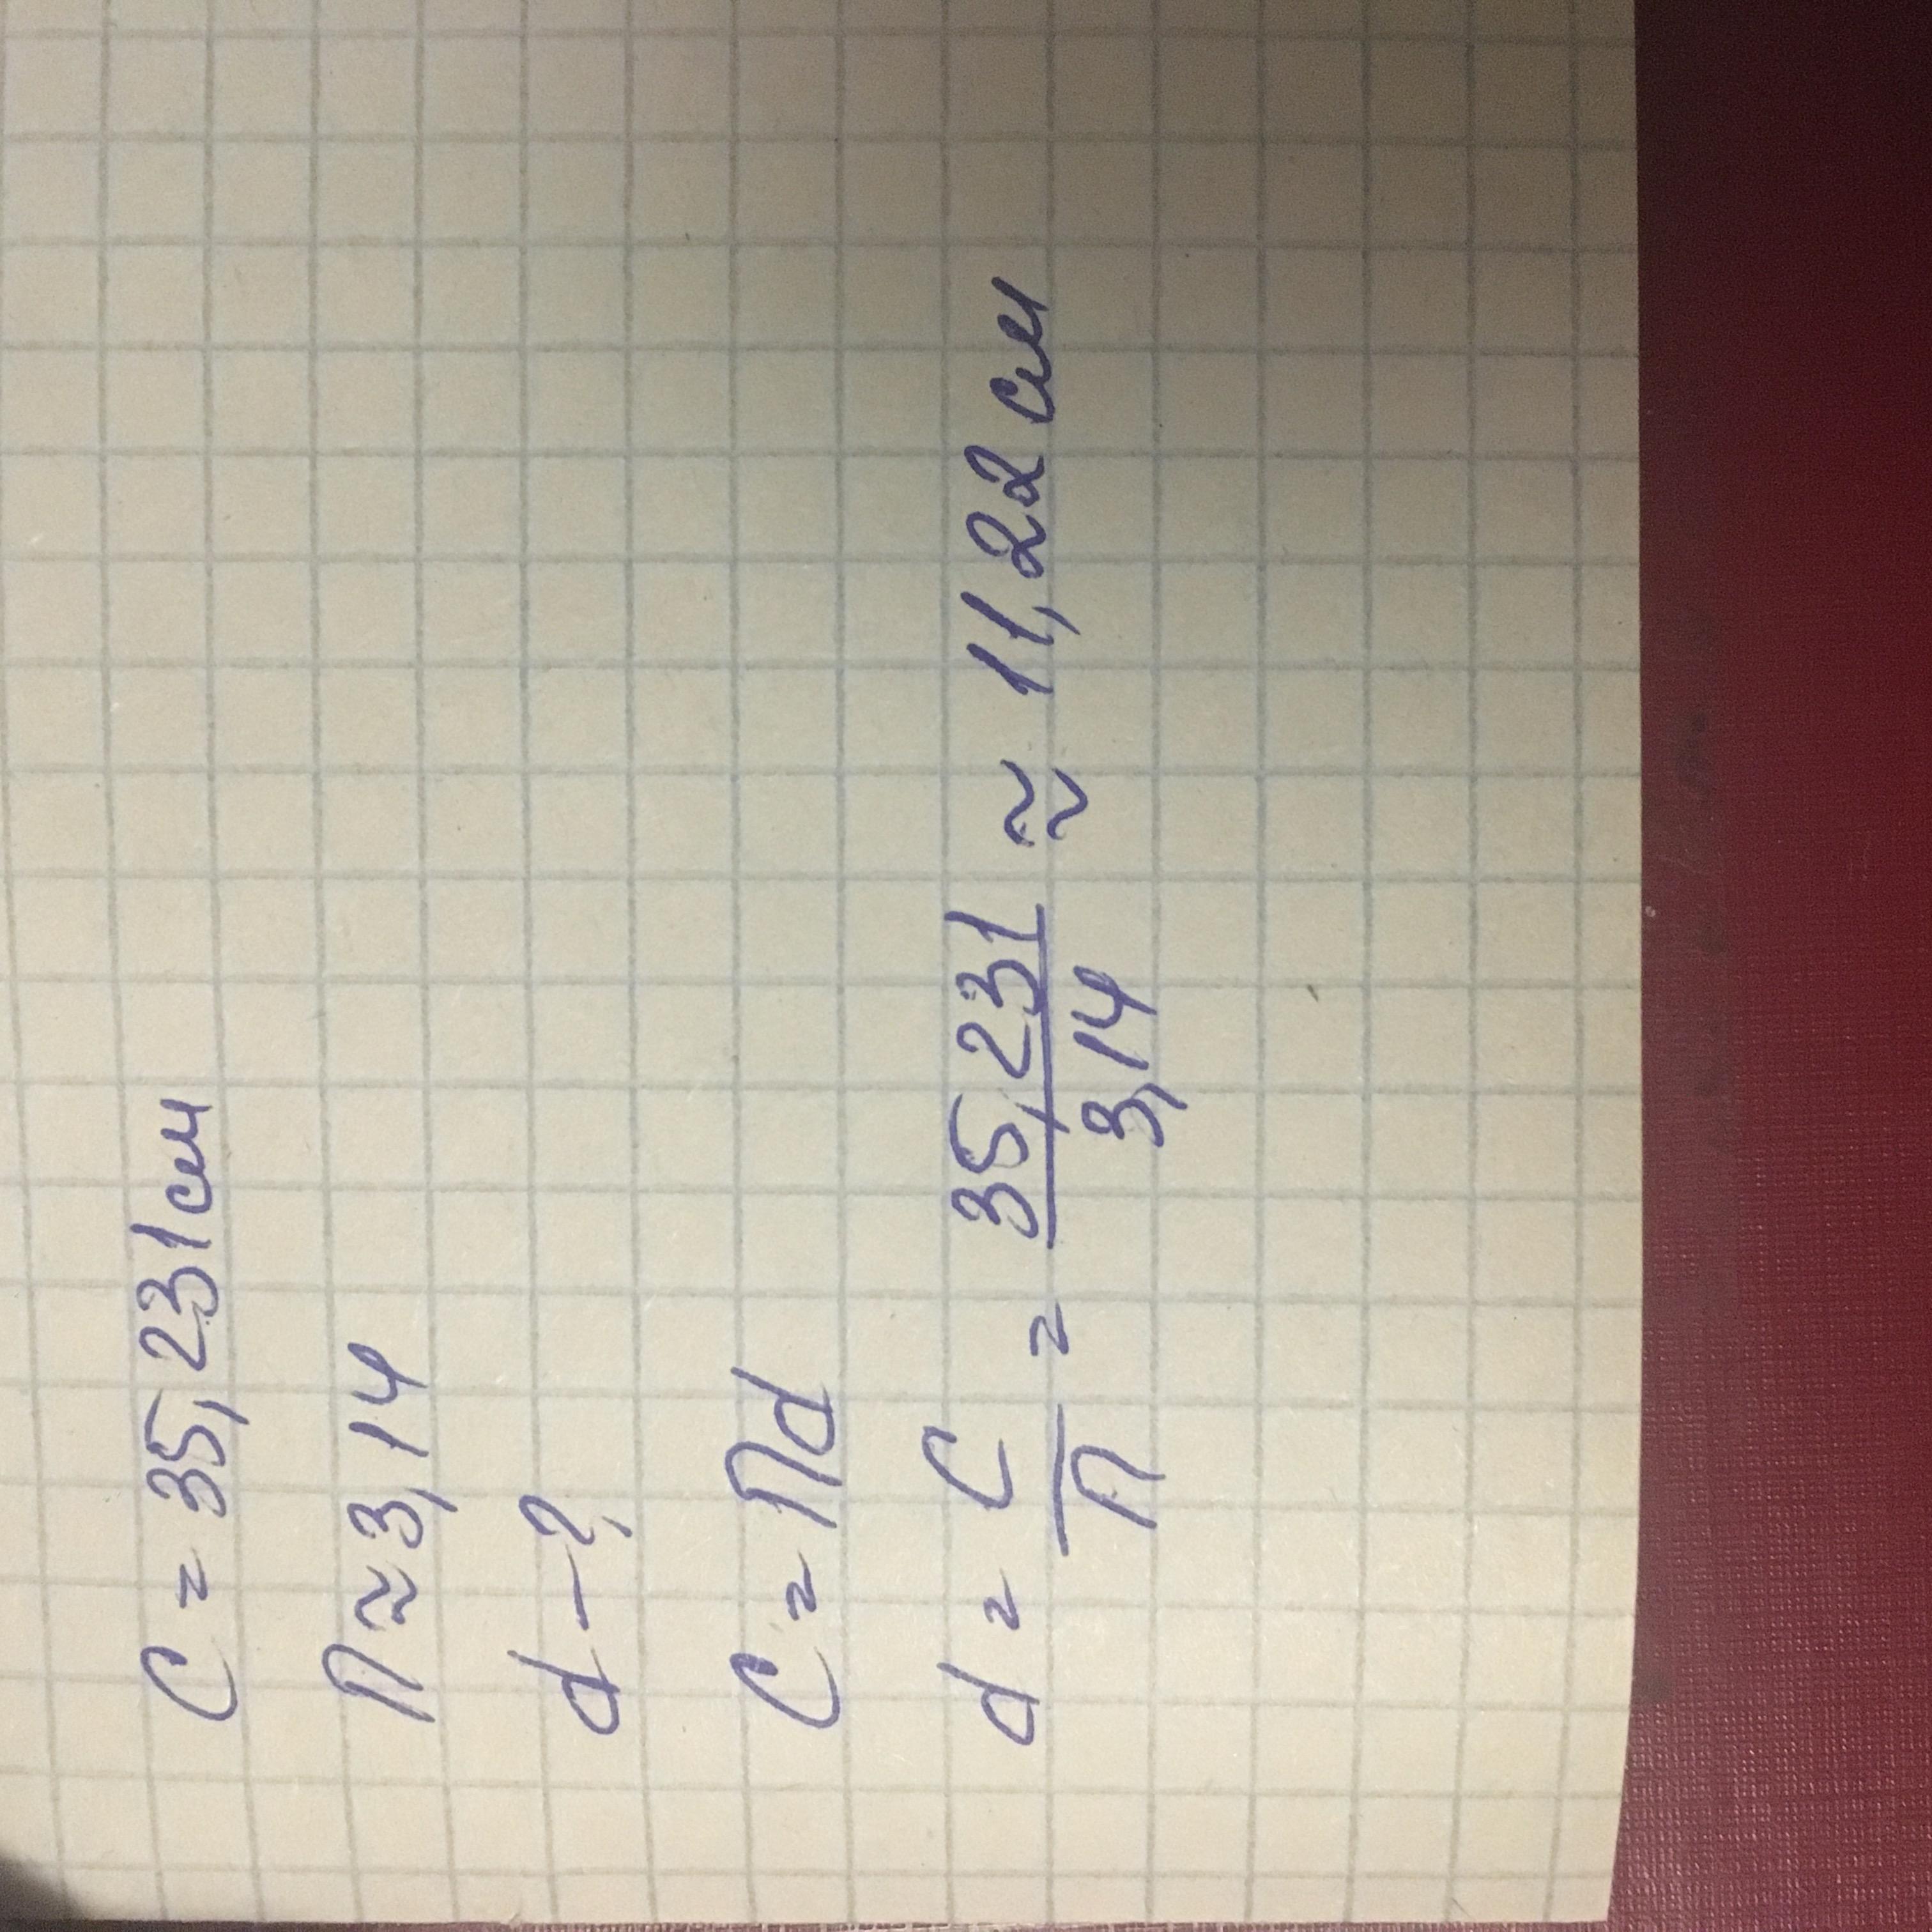 C = 35,231 см
π ≈ 3,14
d - ?
C = πd
d = C/π = 35,231/3,14 ≈ 11,22 см